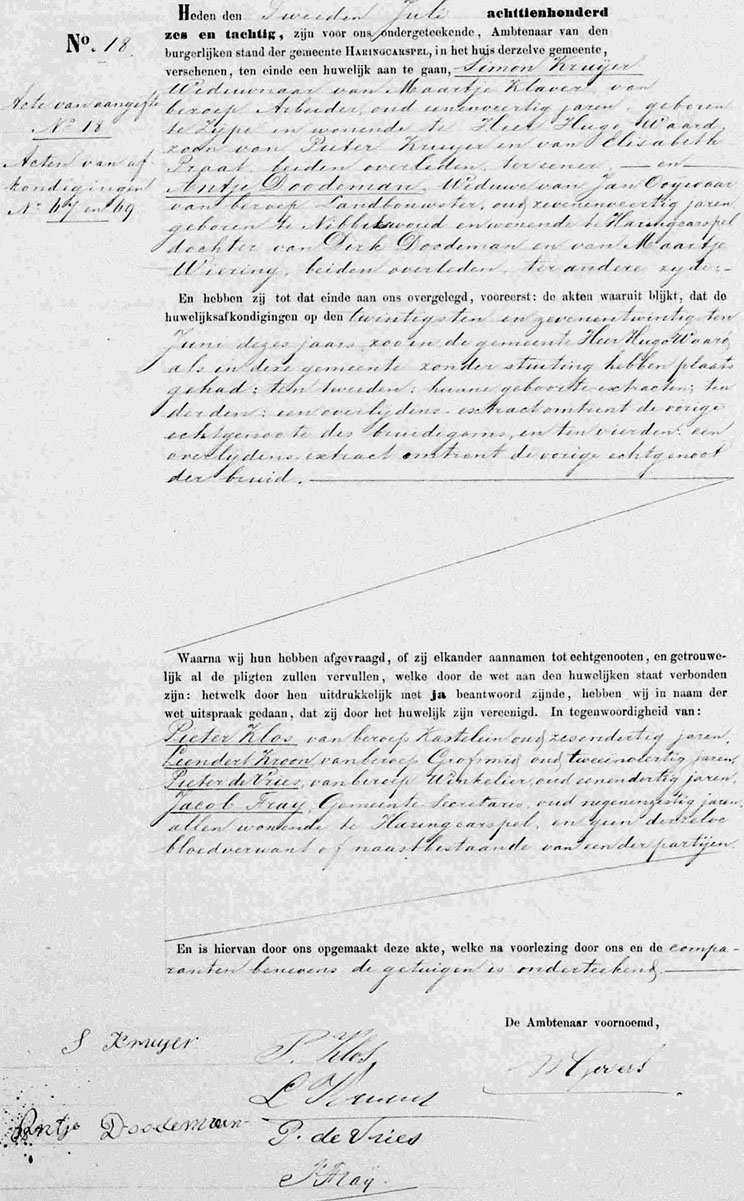 Heden den Tweeden Juli achttienhonderd
No. 18.
zes en tachtig, zijn voor ons ondergeteekende, Ambtenaar van den
burgerlijken stand der gemeente HARINGCARSPEL, in het huis derzelve gemeente,
verschenen, ten einde een huwelijk aan te gaan, Simon Kruijer
Weduwnaar van Maartje Klaver, van
Acte van aangifte
No 18
beroep Arbeider, oud eenenveertig jaren, geboren
te Zype en wonende te Heer Hugo Waard
Acten van af-
kondigingen
No 47 en 49
zoon van Pieter Kruyer en van Elisabeth
Praat, beiden overleden, ter eener, — en —
Antje Doodeman, Weduwe van Jan
van beroep Landbouwster, oud zevenenveertig jaren
geboren te Nibbixwoud en wonende te Haringcarspel
dochter van Dirk Doodeman en van Maartje
Wiering, beiden overleden, ter andere zyde;-
En hebben zij tot dat einde aan ons overgelegd, vooreerst: de akten waaruit blijkt, dat de
huwelijksafkondigingen op den twintigsten en zevenentwintigsten
Juni dezes jaars, zoo in de gemeente Heer Hugo Waard
als in deze gemeente zonder stuiting hebben plaats
gehad; ten tweeden: hunne geboorte-extracten; ten
derden: een overlijdens-extract omtrent de vorige
echtgenoote des bruidegoms, en ten vierden: een
overlijdens-extract omtrent de vorige echtgenoot
der bruid.
Waarna wij hun hebben afgevraagd, of zij elkander aannamen tot echtgenooten, en getrouwe-
lijk al de pligten zullen vervullen, welke door de wet aan den huwelijken staat verbonden
zijn: hetwelk door hen uitdrukkelijk met ja beantwoord zijnde, hebben wij in naam der
wet uitspraak gedaan, dat zij door het huwelijk zijn vereenigd. In tegenwoordigheid van:
Pieter Klos, van beroep Kastelein oud zesendertig jaren,
Leendert Kroon, van beroep Grofsmid, oud tweeenveertig jaren,
Pieter de Vries, van beroep Winkelier, oud eenendertig jaren,
Jacob Fray, Gemeente Secretaris, oud negenenzestig jaren,
allen wonende te Haringcarspel, en geen derzelve
bloedverwant of naastbestaande van een der partijen.
En is hiervan door ons opgemaakt deze akte, welke na voorlezing door ons en de compa-
ranten benevens de getuigen is onderteekend,
De Ambtenaar voornoemd,
S Kruyer
P. Klos
Govers
L Kroon
Antje Doodeman
P. de Vries
J Fray